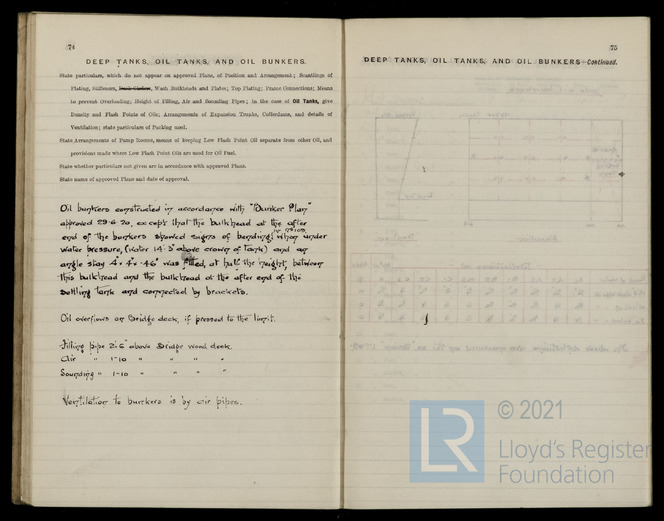 74
DEEP TANKS, OIL TANKS, AND OIL BUNKERS.
State particulars, which do not appear on approved Plans, of Position and Arrangement; Scantlings of
Plating, Stiffeners, Wash Bulkheads and Plates; Top Plating; Frame Connections; Means
to prevent Overloading; Height of Filling, Air and Sounding Pipes; in the case of Oil Tanks, give
Density and Flash Points of Oils; Arrangements of Expansion Trunks, Cofferdams, and details of
Ventilation; state particulars of Packing used.
State Arrangements of Pump Rooms, means of keeping Low Flash Point Oil separate from other Oil, and
provisions made where Low Flash Point Oils are used for Oil Fuel.
State whether particulars not given are in accordance with approved Plans.
State name of approved Plans and date of approval.
Oil bunkers constructed in accordance with "Bunker Plan"
approved 29·6·20, except that the bulkhead at the after
end of the bunkers showed signs of bending, when under
water pressure, (water 14·3" above crown of tank) and an
angle stay 4" × 4" × ·46" was fitted, at half the height, between
this bulkhead and the bulkhead at the after end of the
settling tank and connected by brackets.
Oil overflows on Bridge deck, if pressed to the limit.
Filling pipe 2'·6" above Bridge wood deck.
Air " 1-10 " " " "
Sounding " 1-10 " " " "
Ventilation to bunkers is by air pipes.
75
DEEP TANKS, OIL TANKS, AND OIL BUNKERS—Continued.
LR
© 2021
Lloyd's Register
Foundation